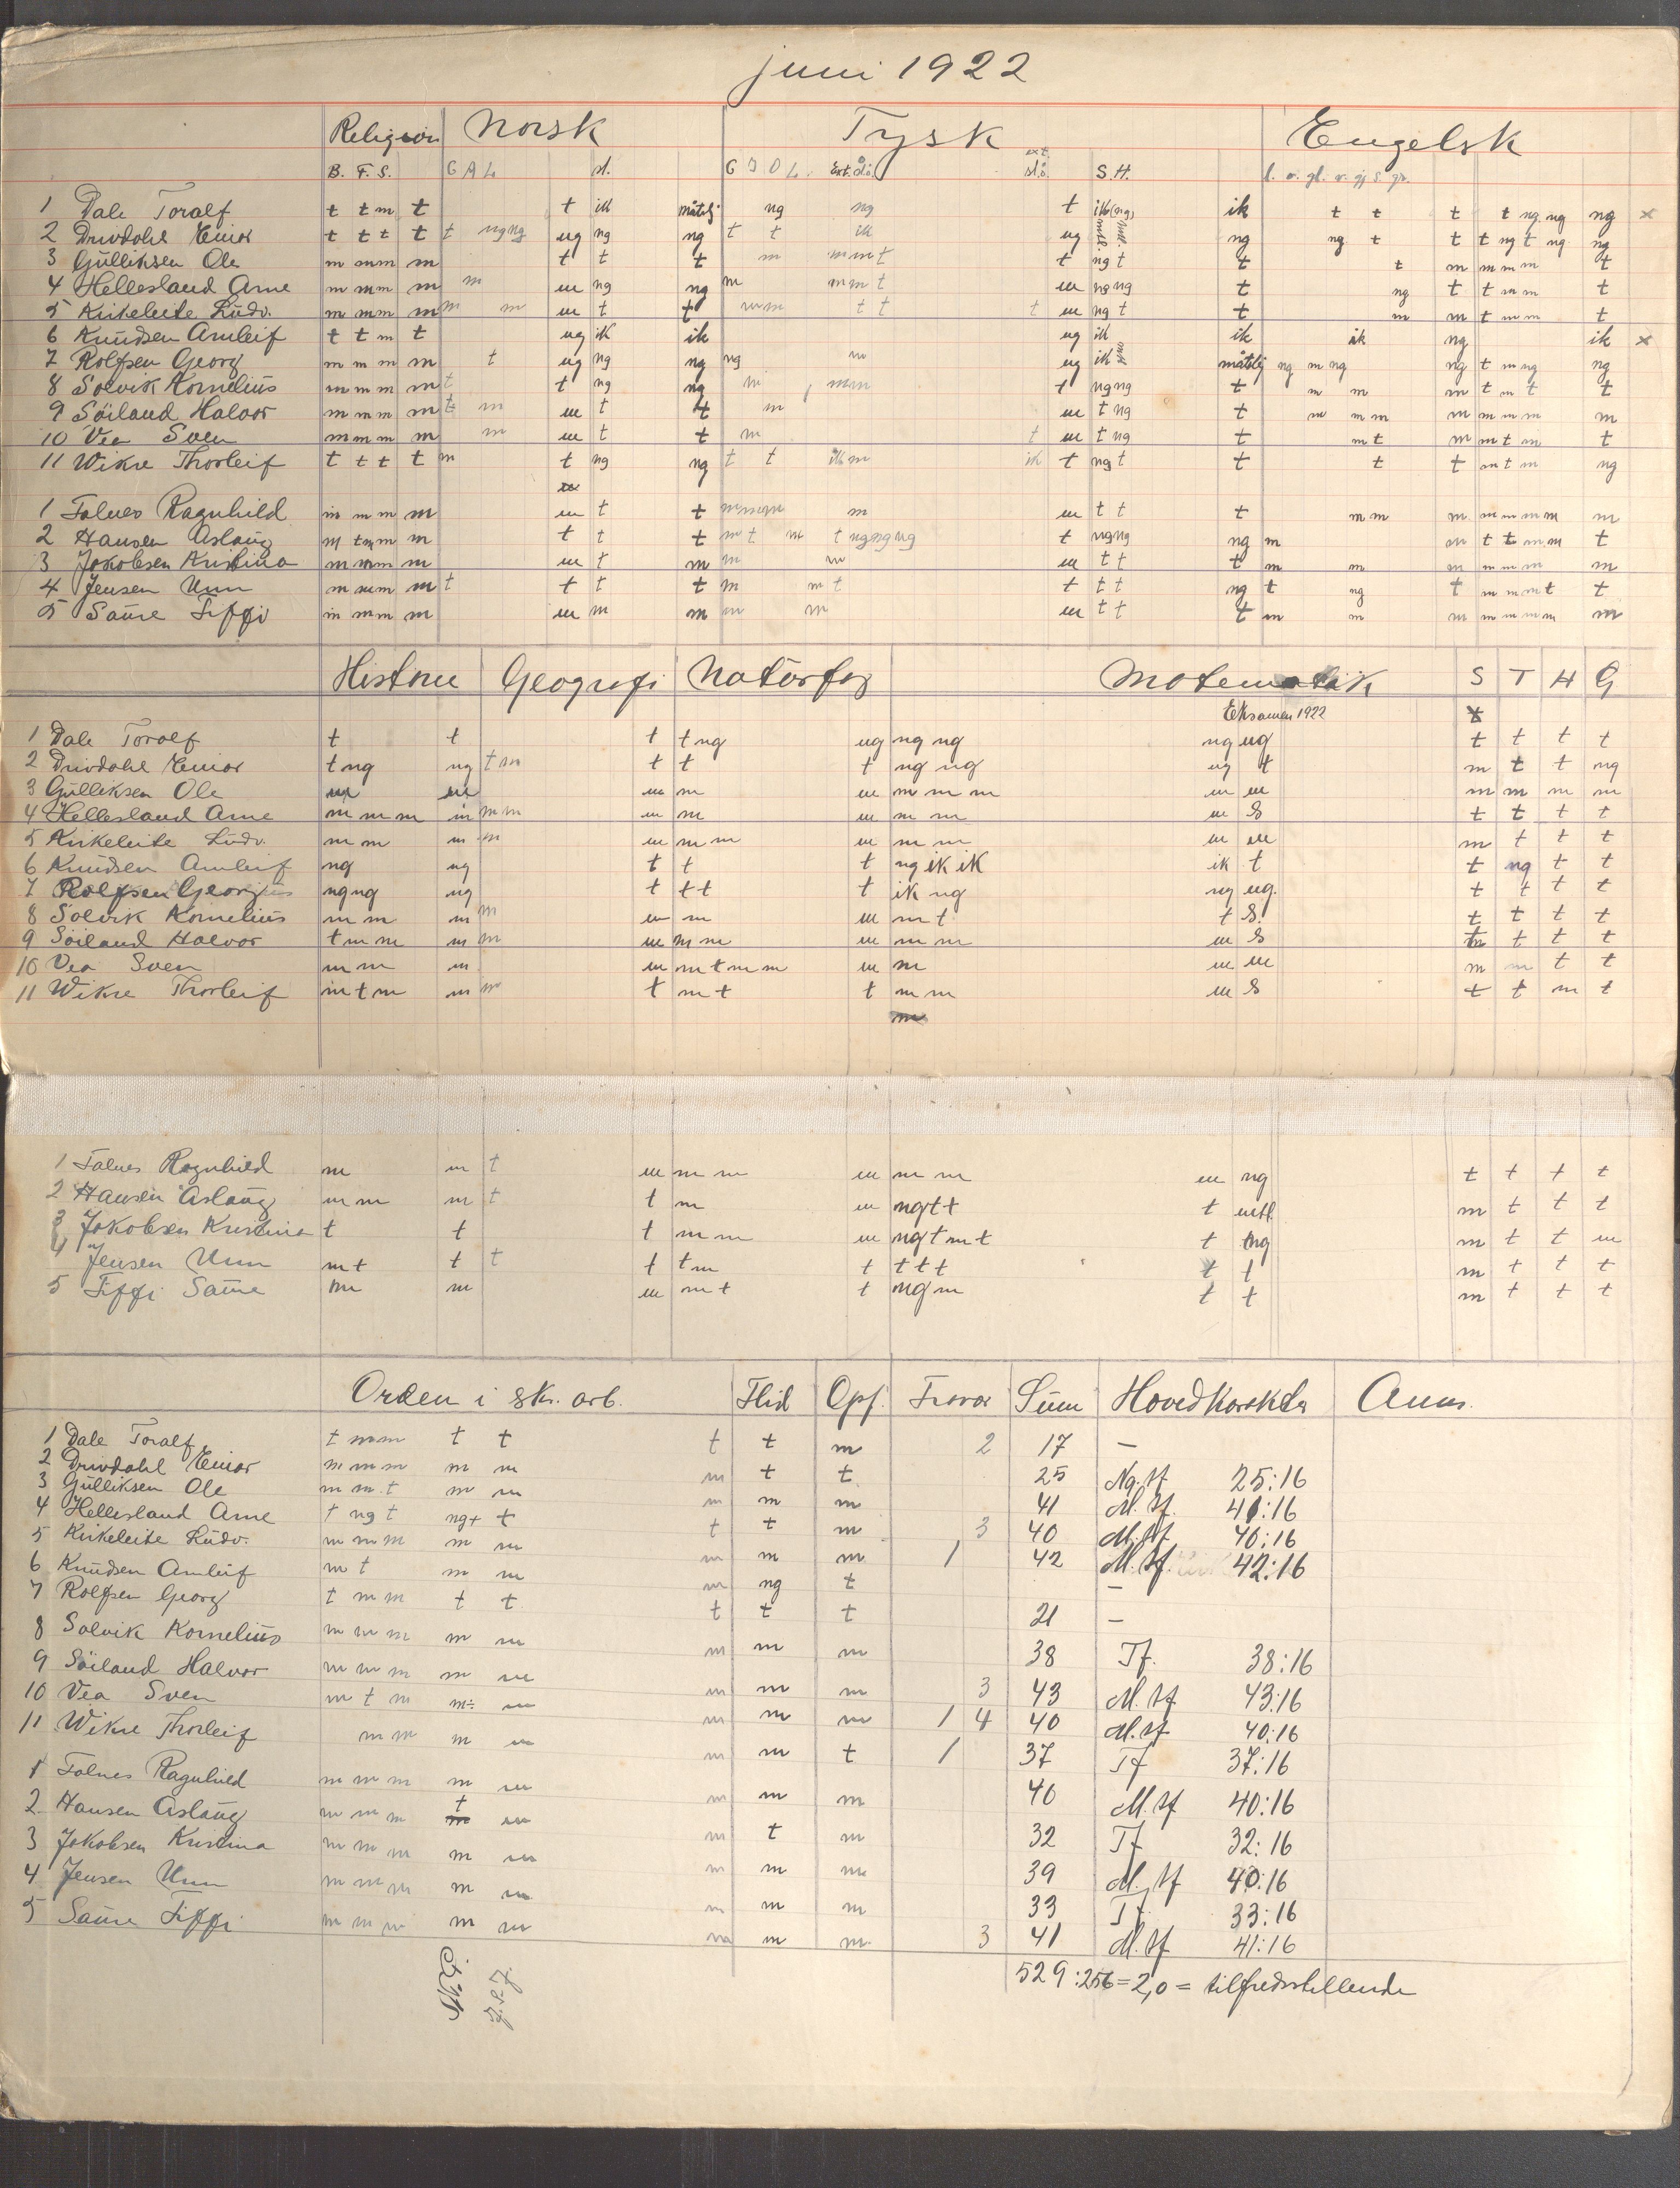 juni 1922
Religion Norsk Tysk Engelsk
B. F. S. G A L st. G J O L. Ext. st.ö. ext. st.ö. S. H. l. o. gl. v. gj s. gr.
1 Dale Toralf t t m t t ik måtelj ng ng t ik(ng) ik t t t t ng ng ng x
2 Drivdahl Einar t t t t t ng ng ng ng ng t t ik ug ng ng t t t ng t ng ng
3 Gulliksen Ole m m m m t t t m m m t t ng t t t m m m m t
4 Hellesland Arne m m m m m m ng ng m m m t m ng ng t ng t t m m t
5 Kirkeleite Ludv. m m m m m m m t t m m t t t m ng t t m m t m m t
6 Knudsen Arnleif t t m t ug ik ik ug ik ik ik ng ik x
7 Rolfsen Georg m m m m t ug ng ng ng m ug ik måtelj ng m ng ng t m ng ng
8 Solvik Kornelius m m m m t t ng ng m m m t ng ng t m m m t m t t
9 Söiland Halvor m m m m t m m t t m m t ng t m m m m m m m m
10 Vea Sven m m m m m m t t m t m t ng t m t m m t m t
11 Wikre Thorleif t t t t m t ng ng t t ik m ik t ng t t t t m t m ng
1 Falnes Ragnhild m m m m m t t m m m m m m t t t m m m m m m m m
2 Hansen Aslaug m t m m m t t t m t m t ng ng ng t ng ng ng m m t t m m t
3 Jakobsen Kristina m m m m m t m m m m t t t m m m m m m m
4 Jensen Unn m m m m t t t t m m t t t t ng t ng t m m m t t
5 Saure Siffi m m m m m m m m m m t t t m m m m m m m m
Historie Geografi Naturfag Matematik S T H G
Eksamen 1922
1 Dale Toralf t t t t ng ug ng ng ng ug t t t t
2 Drivdahl Einar t ng ng t m t t t ng ng ug t m t t ng
3 Gulliksen Ole m m m m m m m m m m m m m m
4 Hellesland Arne m m m m m m m m m m m m S t t t t
5 Kirkeleite Ludv. m m m m m m m m m m m m m t t t
6 Knudsen Arnleif ng ng t t t ng ik ik ik t t ng t t
7 Rolfsen Georg ng ng ng t t t t ik ng ng ug. t t t t
8 Solvik Kornelius m m m m m m m m t t S. t t t t
9 Söiland Halvor t m m m m m m m m m m m S t t t
10 Vea Sven m m m m m t m m m m m m m m t t
11 Wikre Thorleif m t m m m t m t t m m m S t t m t
1 Falnes Ragnhild m m t m m m m m m m ng t t t t
2 Hansen Aslaug m m m t t m m ng t t t mtl. m t t t
3 Jakobsen Kristina t t t m m m ng t m t t ng m t t m
4 Jensen Unn m t t t t t m t t t t t t m t t t
5 Siffi Saure m m m m t t ng m t t m t t t
Orden i skr. arb. Flid Opf. Fravær Sum Hovedkarakter Anm.
1 Dale Toralf t m m t t t t m 2 17 —
2 Drivdahl Einar m m m m m m t t 25 Ng. tf 25:16
3 Gulliksen Ole m m t m m m m m 41 M. tf. 41:16
4 Hellesland Arne t ng t ng+ t t t m 3 40 M. tf 40:16
5 Kirkeleite Ludv. m m m m m m m m 1 42 M. tf. 42:16
6 Knudsen Arnleif m t m m m ng t —
7 Rolfsen Georg t m m t t t t t 21 —
8 Solvik Kornelius m m m m m m m m 38 Tf. 38:16
9 Söiland Halvor m m m m m m m m 3 43 M. tf 43:16
10 Vea Sven m t m m÷ m m m m 1 4 40 M. tf 40:16
11 Wikre Thorleif m m m m m m t 1 37 Tf 37:16
1 Falnes Ragnhild m m m m m m m m 40 M. tf 40:16
2 Hansen Aslaug m m m t m m t m 32 Tf 32:16
3 Jakobsen Kristina m m m m m m m m 39 M. tf 40:16
4 Jensen Unn m m m m m m m m 33 Tf. 33:16
5 Saure Siffi m m m m m m m m 3 41 M. tf 41:16
529:256=2,0 = tilfredsstillende